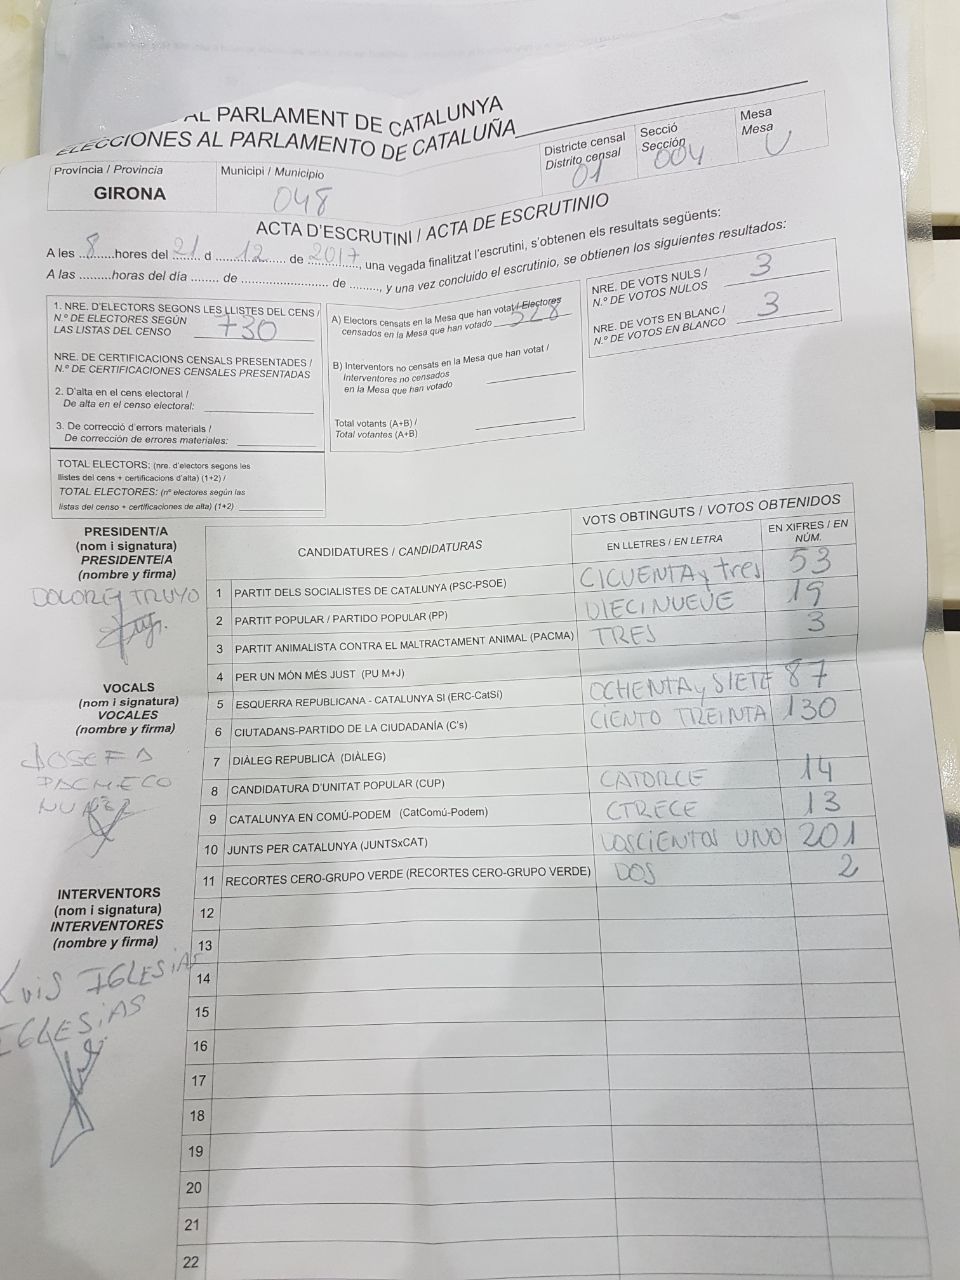 AL PARLAMENT DE CATALUNYA
ELECCIONES AL PARLAMENTO DE CATALUÑA
Província / Provincia
GIRONA
Municipi / Municipio
048
Districte censal
Distrito censal
01
Secció
Sección
004
Mesa
Mesa
U
ACTA D'ESCRUTINI / ACTA DE ESCRUTINIO
A les 8 hores del 21 d 12 de 2017, una vegada finalitzat l'escrutini, s'obtenen els resultats següents:
A las ......... horas del día ........ de ............................ de ........, y una vez concluido el escrutinio, se obtienen los siguientes resultados:
1. NRE. D'ELECTORS SEGONS LES LLISTES DEL CENS /
N.º DE ELECTORES SEGÚN
LAS LISTAS DEL CENSO 730
NRE. DE CERTIFICACIONS CENSALS PRESENTADES /
N.º DE CERTIFICACIONES CENSALES PRESENTADAS
2. D'alta en el cens electoral /
De alta en el censo electoral:
3. De correcció d'errors materials /
De corrección de errores materiales:
TOTAL ELECTORS: (nre. d'electors segons les
llistes del cens + certificacions d'alta) (1+2) /
TOTAL ELECTORES: (nº electores según las
listas del censo + certificaciones de alta) (1+2)
A) Electors censats en la Mesa que han votat / Electores
censados en la Mesa que han votado 528
B) Interventors no censats en la Mesa que han votat /
Interventores no censados
en la Mesa que han votado
Total votants (A+B) /
Total votantes (A+B)
NRE. DE VOTS NULS /
N.º DE VOTOS NULOS 3
NRE. DE VOTS EN BLANC /
N.º DE VOTOS EN BLANCO 3
PRESIDENT/A
(nom i signatura)
PRESIDENTE/A
(nombre y firma)
DOLORES TRUYO
VOCALS
(nom i signatura)
VOCALES
(nombre y firma)
JOSEFA
PACHECO
NUÑEZ
INTERVENTORS
(nom i signatura)
INTERVENTORES
(nombre y firma)
LUIS IGLESIAS
IGLESIAS
CANDIDATURES / CANDIDATURAS
VOTS OBTINGUTS / VOTOS OBTENIDOS
EN LLETRES / EN LETRA
EN XIFRES / EN
NÚM.
1 PARTIT DELS SOCIALISTES DE CATALUNYA (PSC-PSOE) CICUENTA y tres 53
2 PARTIT POPULAR / PARTIDO POPULAR (PP) DIECINUEVE 19
3 PARTIT ANIMALISTA CONTRA EL MALTRACTAMENT ANIMAL (PACMA) TRES 3
4 PER UN MÓN MÉS JUST (PU M+J)
5 ESQUERRA REPUBLICANA - CATALUNYA SI (ERC-CatSí) OCHENTA y SIETE 87
6 CIUTADANS-PARTIDO DE LA CIUDADANÍA (C's) CIENTO TREINTA 130
7 DIÀLEG REPUBLICÀ (DIÀLEG)
8 CANDIDATURA D'UNITAT POPULAR (CUP) CATORCE 14
9 CATALUNYA EN COMÚ-PODEM (CatComú-Podem) CTRECE 13
10 JUNTS PER CATALUNYA (JUNTSxCAT) DOSCIENTOS UNO 201
11 RECORTES CERO-GRUPO VERDE (RECORTES CERO-GRUPO VERDE) DOS 2
12
13
14
15
16
17
18
19
20
21
22